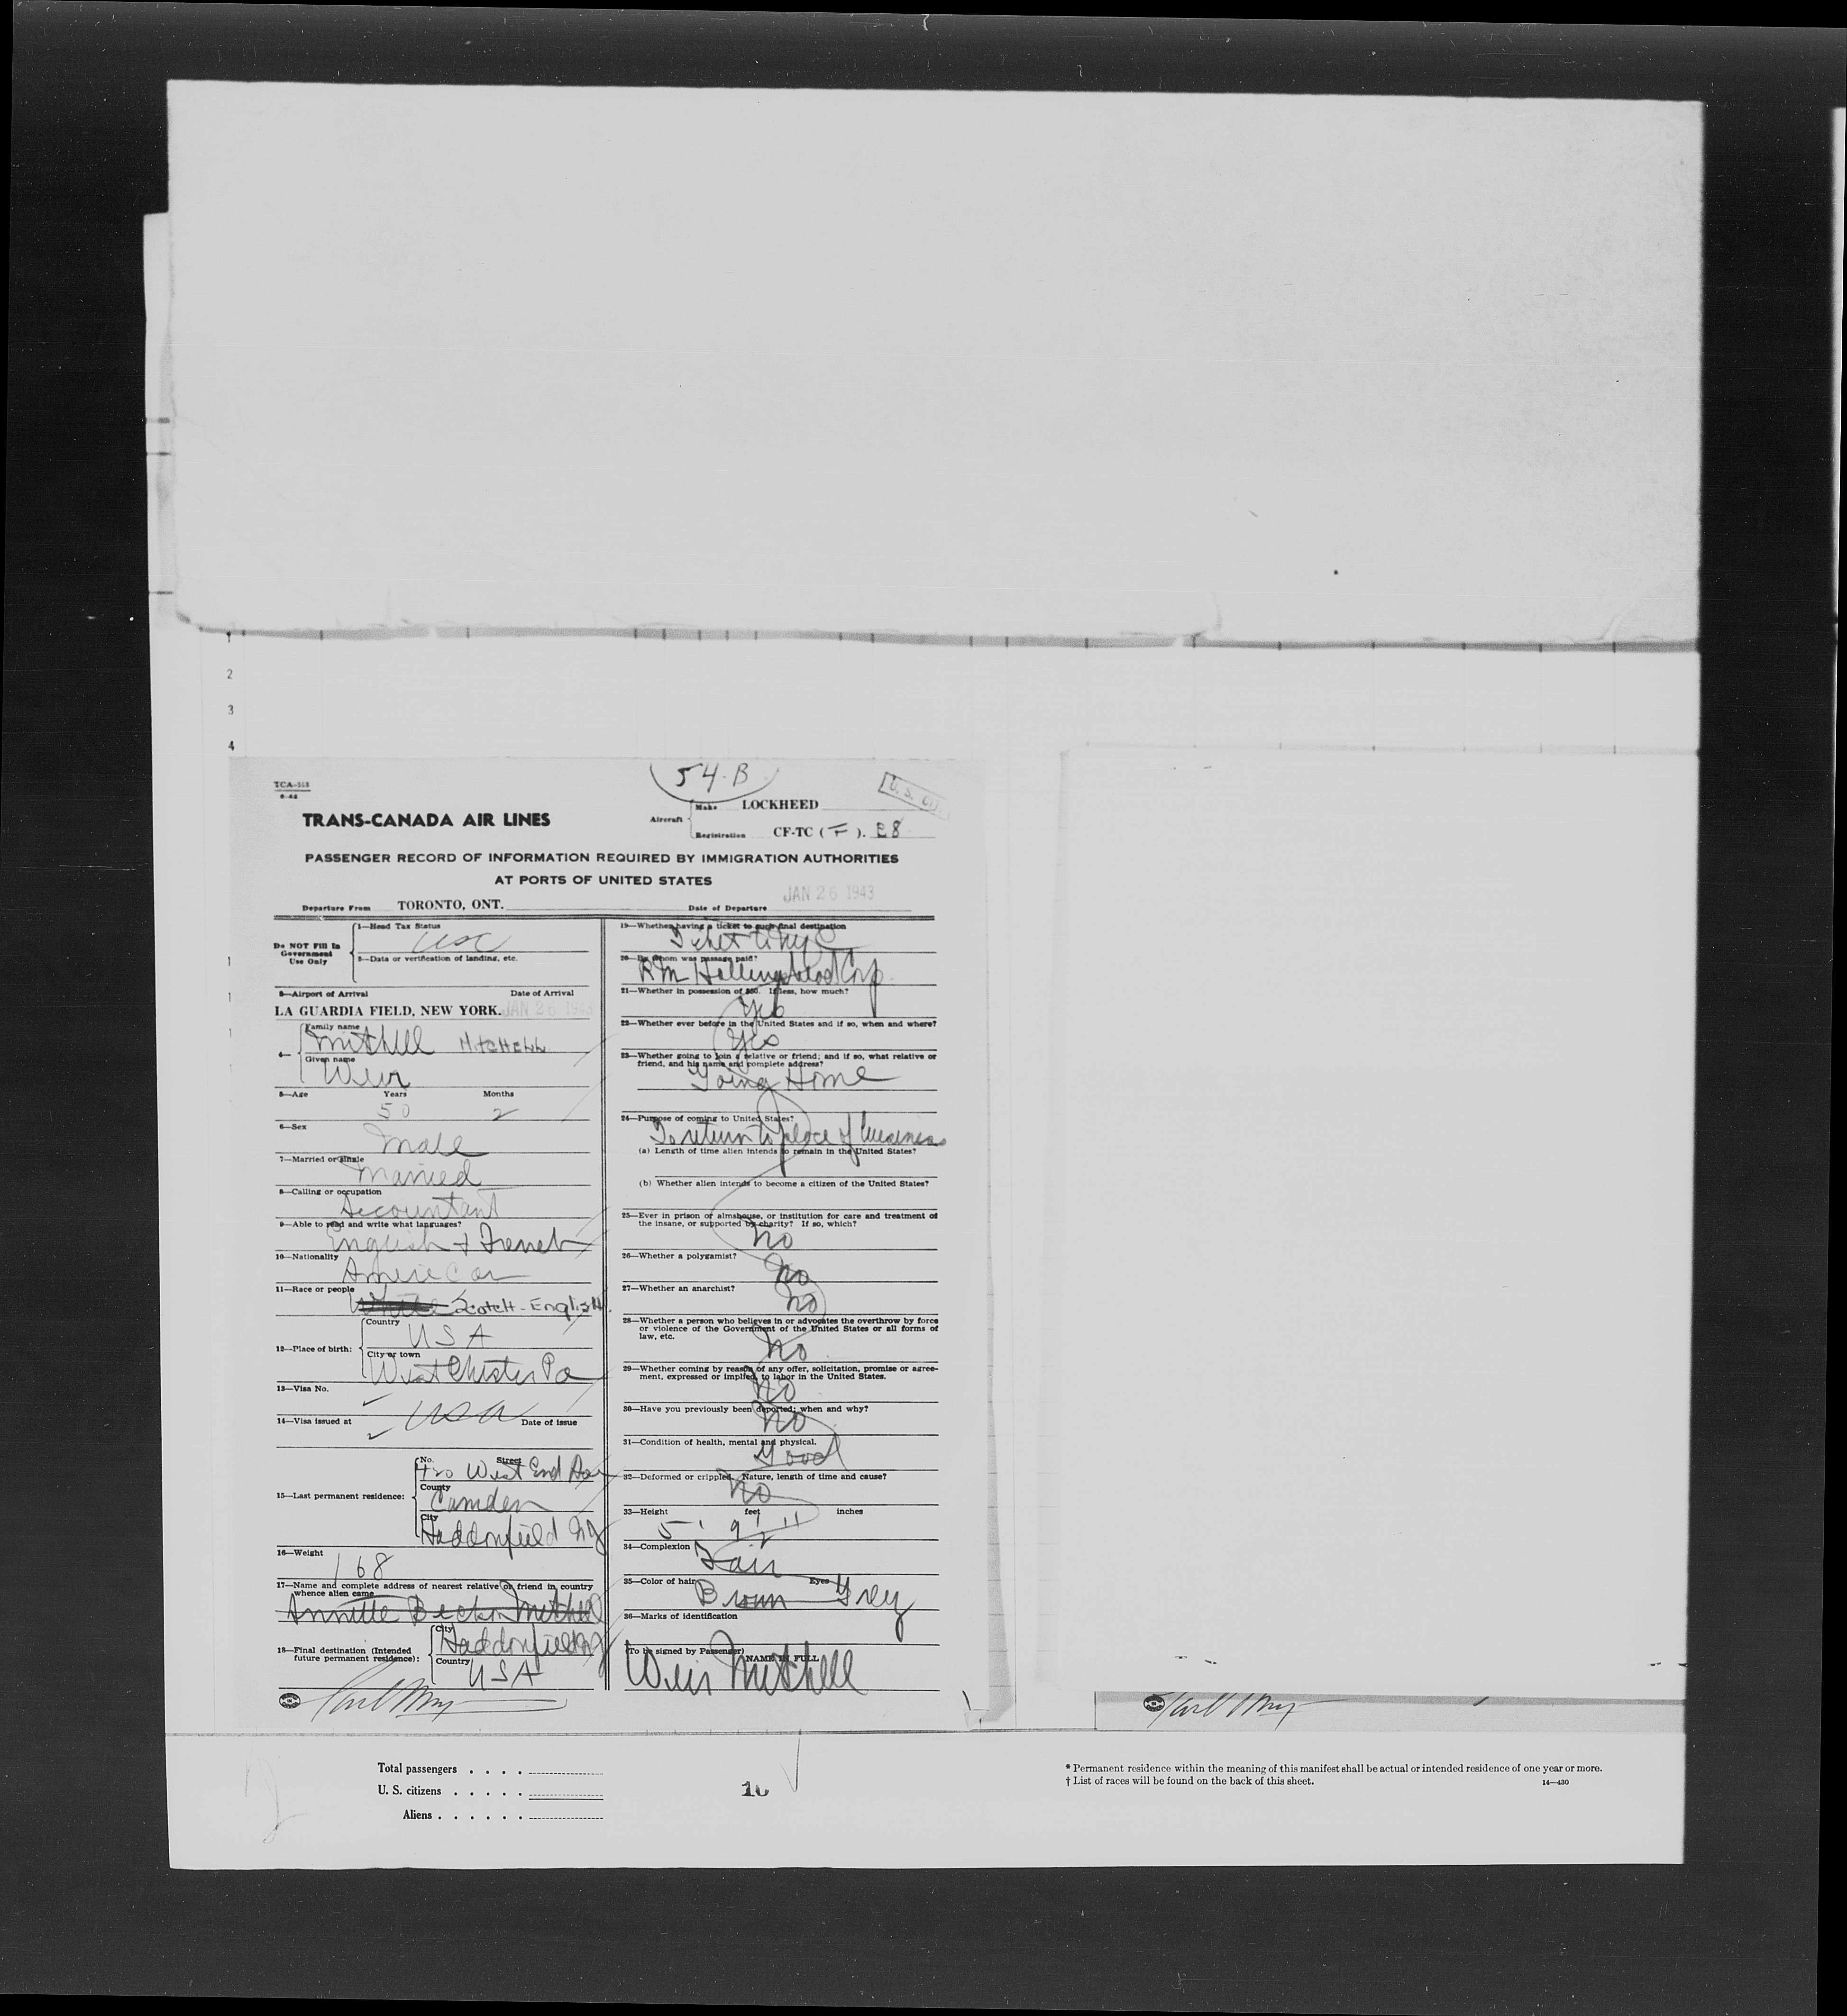 1
2
3
4
54-B
TCA-318
8-42
U. S.
TRANS-CANADA AIR LINES
Aircraft
Make LOCKHEED
Registration CF-TC ( F ). 28
PASSENGER RECORD OF INFORMATION REQUIRED BY IMMIGRATION AUTHORITIES
AT PORTS OF UNITED STATES
Departure From TORONTO, ONT.
Date of Departure JAN 26 1943
Do NOT Fill In Government Use Only
1—Head Tax Status
USC
2—Data or verification of landing, etc.
3—Airport of Arrival Date of Arrival
LA GUARDIA FIELD, NEW YORK. JAN 26 1943
4— Family name
Mitchell MITCHELL
Given name
Weir
5—Age Years Months
50 2
6—Sex
Male
7—Married or Single
Married
8—Calling or occupation
Accountant
9—Able to read and write what languages?
English & French
10—Nationality
American
11—Race or people
White Scotch-English
12—Place of birth:
Country
USA
City or town
West Chester Pa
13—Visa No.
14—Visa issued at USA Date of issue
15—Last permanent residence:
No. Street
420 West End Ave
County
Camden
City
Haddonfield NJ
16—Weight
168
17—Name and complete address of nearest relative or friend in country
whence alien came
Annette Mitchell
18—Final destination (Intended
future permanent residence):
City
Haddonfield NJ
Country
USA
19—Whether having a ticket to such final destination
Ticket to NYC
20—By whom was passage paid?
RM Hollingshead Corp
21—Whether in possession of $50. If less, how much?
Yes
22—Whether ever before in the United States and if so, when and where?
Yes
23—Whether going to join a relative or friend; and if so, what relative or
friend, and his name and complete address?
Going Home
24—Purpose of coming to United States?
To return to place of business
(a) Length of time alien intends to remain in the United States?
(b) Whether alien intends to become a citizen of the United States?
25—Ever in prison or almshouse, or institution for care and treatment of
the insane, or supported by charity? If so, which?
No
26—Whether a polygamist?
No
27—Whether an anarchist?
No
28—Whether a person who believes in or advocates the overthrow by force
or violence of the Government of the United States or all forms of
law, etc.
No
29—Whether coming by reason of any offer, solicitation, promise or agree-
ment, expressed or implied, to labor in the United States.
No
30—Have you previously been deported; when and why?
No
31—Condition of health, mental and physical.
Good
32—Deformed or crippled. Nature, length of time and cause?
No
33—Height feet inches
5' 9 1/2"
34—Complexion
Fair
35—Color of hair Eyes
Brown Grey
36—Marks of identification
(To be signed by Passenger)
NAME IN FULL
Weir Mitchell
Total passengers . . . .
U. S. citizens . . . . .
Aliens . . . . . .
10
* Permanent residence within the meaning of this manifest shall be actual or intended residence of one year or more.
† List of races will be found on the back of this sheet.
14—430